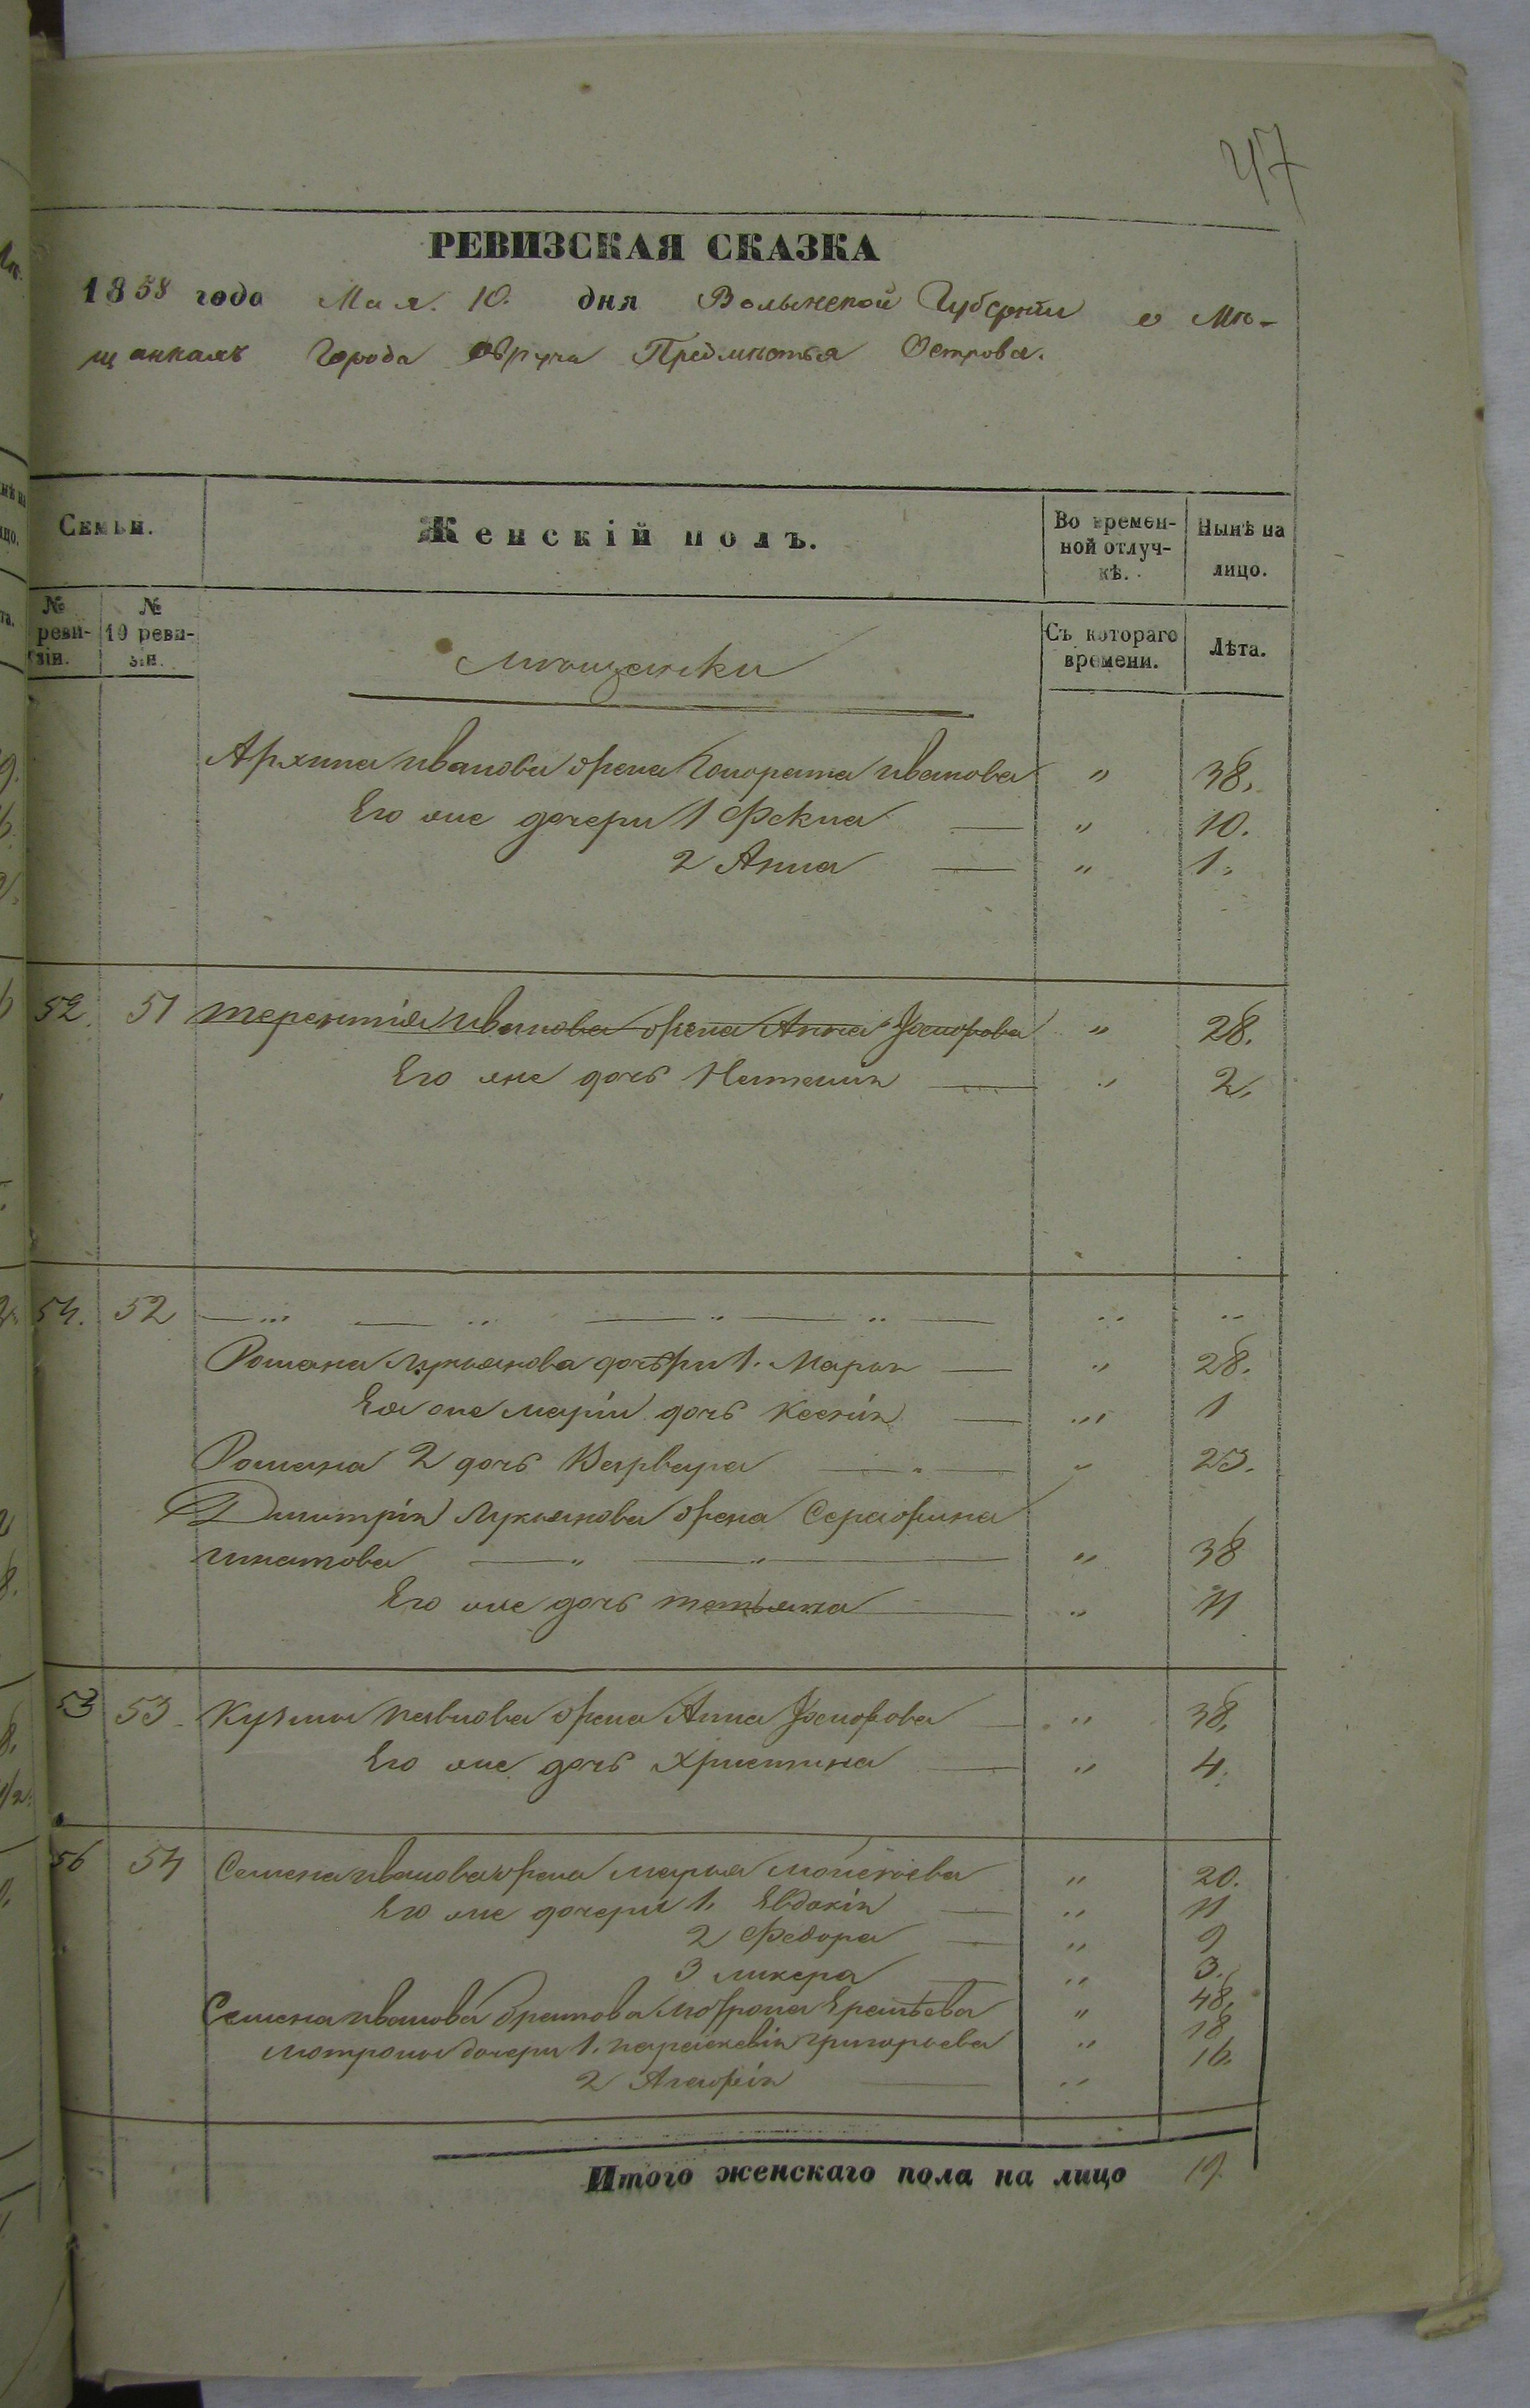 47
РЕВИЗСКАЯ СКАЗКА
1858 года Мая 10. дня Волынской Губерніи о Мѣ-
щанкахъ Города Овруча Предмѣстья Острова.
Семьи.
Женскій полъ.
Во времен-
ной отлуч-
кѣ.
Нынѣ на
лицо.
№
реви-
зіи.
№
10 реви-
зіи.
Съ котораго
времени.
Лѣта.
мѣщанки
Архипа иванова жена Гонората иванова " 38.
Его же дочери 1 Фекла — " 10.
2 Анна — " 1.
52. 51 терентія иванова жена Анна " 28.
Его же дочь — " 2.
54. 52
Романа лукьянова дочери 1. Марья — " 28.
Ея же маріи дочь ксенія — " 1
Романа 2 дочь Варвара — " — " 23.
Димитрія лукьянова жена Серафима
игнатова — " — " — " 38
Его же дочь татьяна — " 11
53 53 кузьмы павлова жена Анна — " 38.
Его же дочь христина — " 4.
56 54 Семена иванова жена марья моисеева " 20.
Его же дочери 1. Евдокія — " 11
2 Федора — " 9
3 ликера — " 3.
Семена иванова братова мотрона " 48.
мотроны дочери 1. параскевія григорьева " 18
2 Агафія — " 16.
Итого женскаго пола на лицо 19.